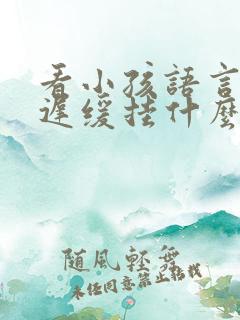 看小孩語言
遲緩挂什麽
隨風輕舞
未经同意禁止转载